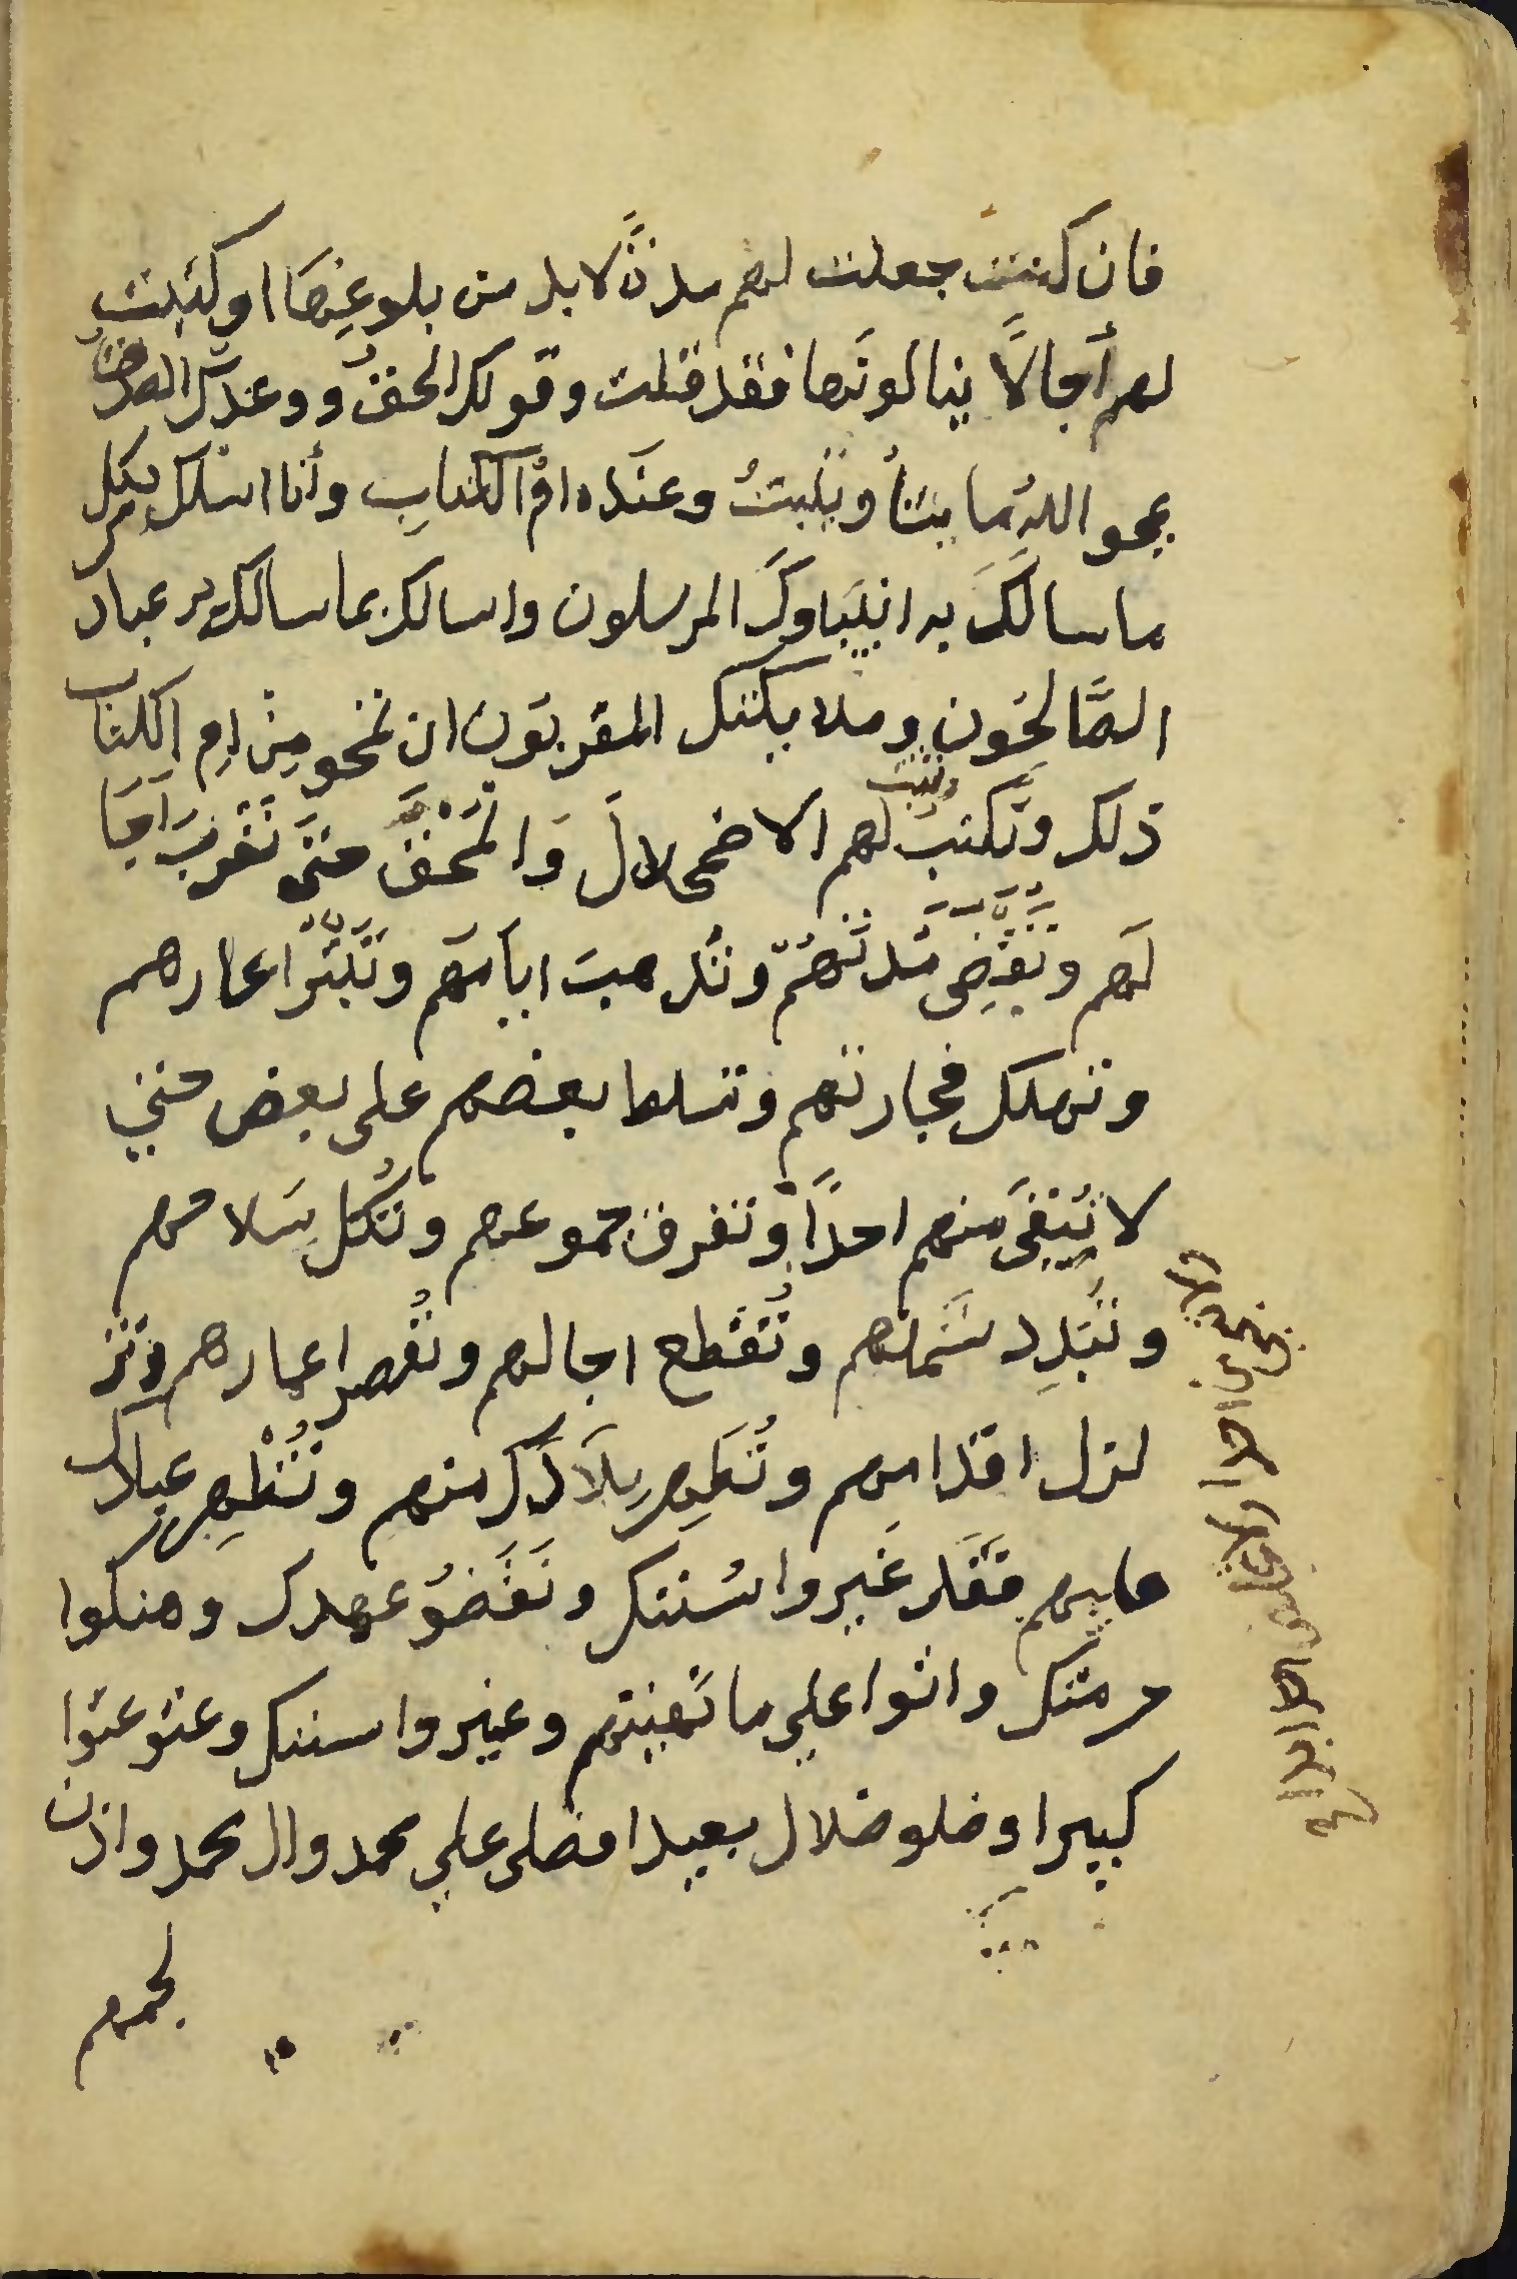 فان كنت جعلت لهم مدةً لابد من بلوغها او كتبت
لهم أجالاً ينالونها فقد قلت وقولك الحق ووعدك الصدق
يمحو اللهُ ما يشأُ ويثبتُ وعنده امُ الكتابِ وأنا اسلك بكل
ما سالَكَ به انبياوكَ المرسلون واسالك بما سالك به عباد
الصَّالحون وملايكتك المقربون ان تمحو مِنْ امِ الكتاب
ذلك وتكتبَ لهم الاضمحلالَ وَالمَحْقَ حتى تقربَ اَجَا
وتثبت
لهم وتقضِى مدتهُم وتذهبَ ايامهم وتبتر اعمارهم
وتهلك فجارتهم وتسلط بعضهم على بعض حتي
لا تُبقى منهم احداً وتفرق جموعهم وتكل سلاحهم
وتبدِد شملهم وتُقطع اجالهم وتُقصر اعمارهم وتز
لزل اقدامهم وتُطهِر بلَادَك منهم وتُظهِر عبادك
عليهم فقد غيروا سُنتك ونقضُو عهدك وهتكوا
حرمتك واتوا علي ما نهيتهم وغيروا سنتك وعتو عتوا
كبيرا وضلو ضلال بعيدا فصلى علي محمد وال محمد واذن
لجمعهم